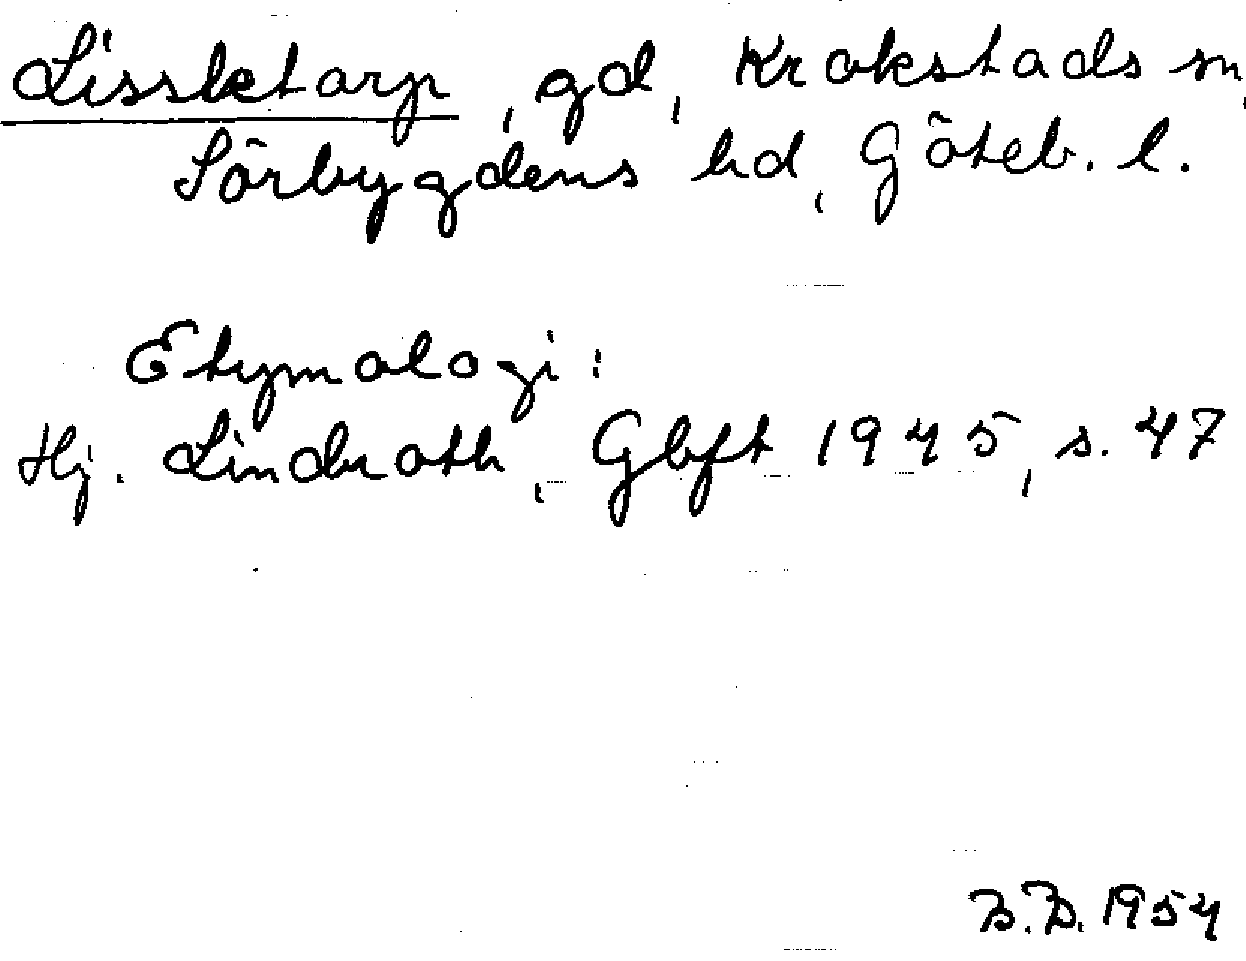 Lissletorp, gd, Krokstads sn,
Sörbygdens hd, Göteb. l.
Etymologi:
Hj. Lindroth, Gbft 1945, s. 47
B.B. 1954